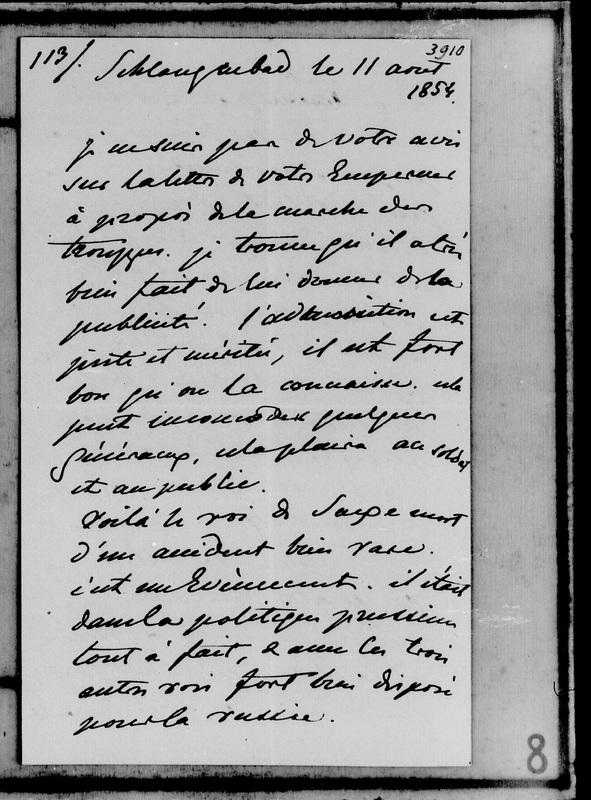 113/.
3910
Schlangenbad le 11 août
1854.
je ne suis pas de votre avis
sur la lettre de votre Empereur
à propos de la marche des
trouppes. je trouve qu'il a très
bien fait de lui donner de la
publicité. l'admonition est
juste et méritée, il est fort
bon qu'on la connaisse. cela
peut incomoder quelques
généraux, cela plaira au soldat
et au public.
Voilà le roi de Saxe mort
d'un accident bien rare.
c'est un Evènement. il était
dans la politique prussienne
tout à fait, & avec les trois
autres rois fort bien disposé
pour la russie.
8